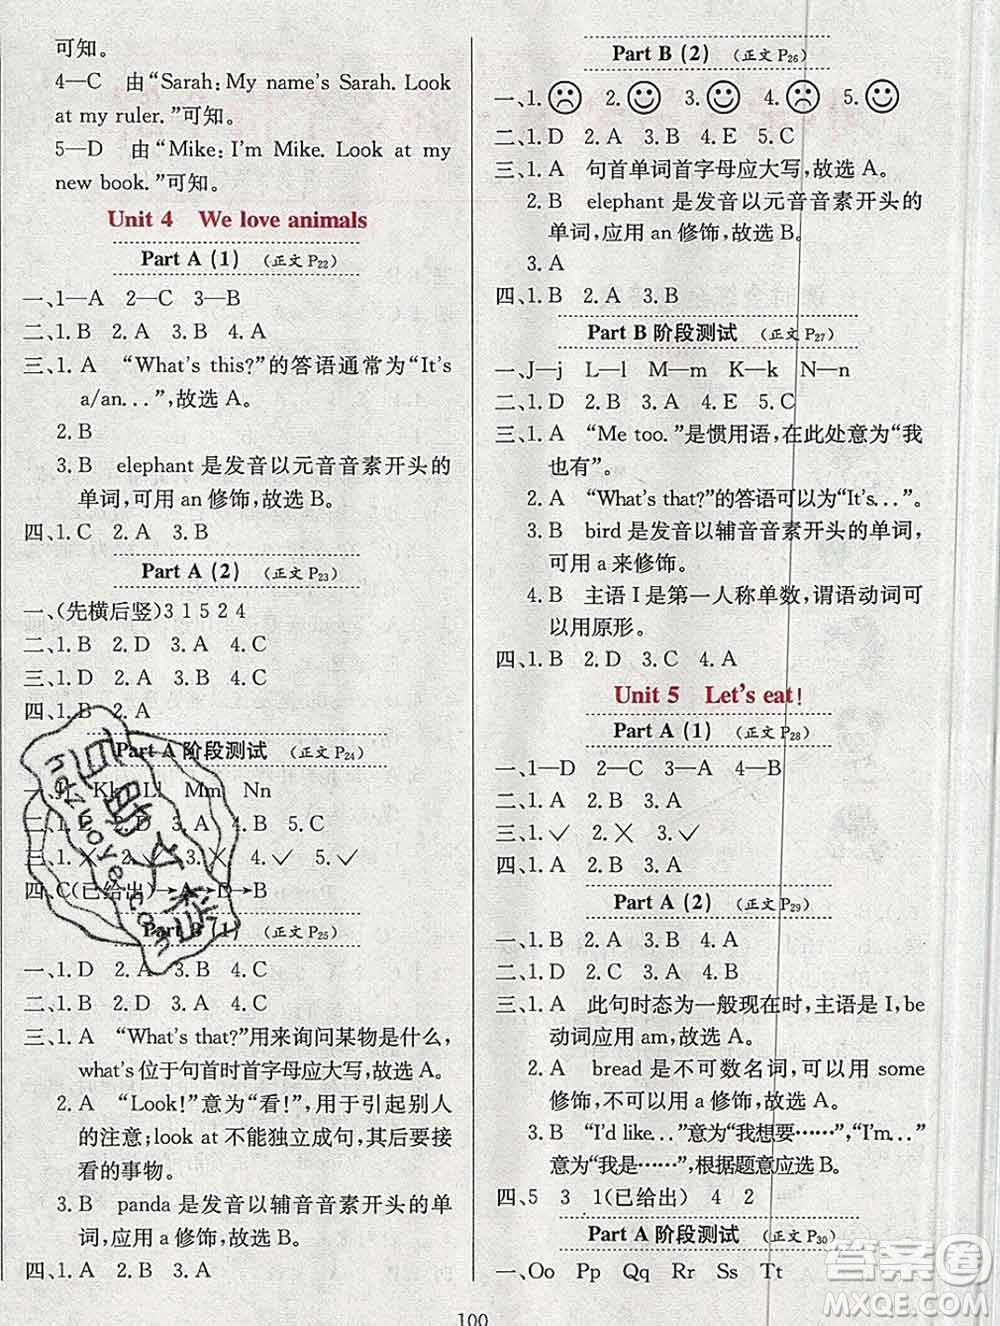 可知。
4—C　由“Sarah: My name's Sarah. Look
at my ruler.”可知。
5—D　由“Mike: I'm Mike. Look at my
new book.”可知。
Unit 4　We love animals
Part A (1)　(正文 P22)
一、1—A　2—C　3—B
二、1. B　2. A　3. B　4. A
三、1. A　“What's this?”的答语通常为“It's
a/an...”,故选 A。
2. B
3. B　elephant 是发音以元音音素开头的
单词,可用 an 修饰,故选 B。
四、1. C　2. A　3. B
Part A (2)　(正文 P23)
一、(先横后竖) 3 1 5 2 4
二、1. B　2. D　3. A　4. C
三、1. D　2. A　3. C　4. C
四、1. B　2. A
Part A 阶段测试　(正文 P24)
Kk　Ll　Mm　Nn
二、　2. D　3. A　4. B　5. C
三、1. ✕　2.　3. ✕　4. ✓　5. ✓
四、C(已给出)→A→D→B
Part B (1)　(正文 P25)
一、1. D　2. A　3. B　4. C
二、1. D　2. B　3. A　4. C
三、1. A　“What's that?”用来询问某物是什么,
what's 位于句首时首字母应大写,故选 A。
2. A　“Look!”意为“看!”,用于引起别人
的注意;look at 不能独立成句,其后要接
看的事物。
3. B　panda 是发音以辅音音素开头的单
词,应用 a 修饰,故选 B。
四、1. A　2. B　3. A　4. B
Part B (2)　(正文 P26)
一、1. ☹　2. ☺　3. ☺　4. ☹　5. ☺
二、1. D　2. A　3. B　4. E　5. C
三、1. A　句首单词首字母应大写,故选 A。
2. B　elephant 是发音以元音音素开头的
单词,应用 an 修饰,故选 B。
3. A
四、1. B　2. A　3. B
Part B 阶段测试　(正文 P27)
一、J—j　L—l　M—m　K—k　N—n
二、1. D　2. B　3. A　4. E　5. C
三、1. A　“Me too.”是惯用语,在此处意为“我
也有”。
2. A　“What's that?”的答语可以为“It's...”。
3. B　bird 是发音以辅音音素开头的单词,
可用 a 来修饰。
4. B　主语 I 是第一人称单数,谓语动词可
以用原形。
四、1. B　2. D　3. C　4. A
Unit 5　Let's eat!
Part A (1)　(正文 P28)
一、1—D　2—C　3—A　4—B
二、1. A　2. D　3. B　4. C
三、1. ✓　2. ✕　3. ✓
四、1. A　2. B
Part A (2)　(正文 P29)
一、1. D　2. B　3. A　4. C
二、1. D　2. C　3. A　4. B
三、1. A　此句时态为一般现在时,主语是 I, be
动词应用 am,故选 A。
2. A　bread 是不可数名词,可以用 some
修饰,不可以用 a 修饰,故选 A。
3. B　“I'd like...”意为“我想要……”,“I'm...”
意为“我是……”,根据题意应选 B。
四、5　3　1(已给出)　4　2
Part A 阶段测试　(正文 P30)
一、Oo　Pp　Qq　Rr　Ss　Tt
100
答案圈
MXQE.COM